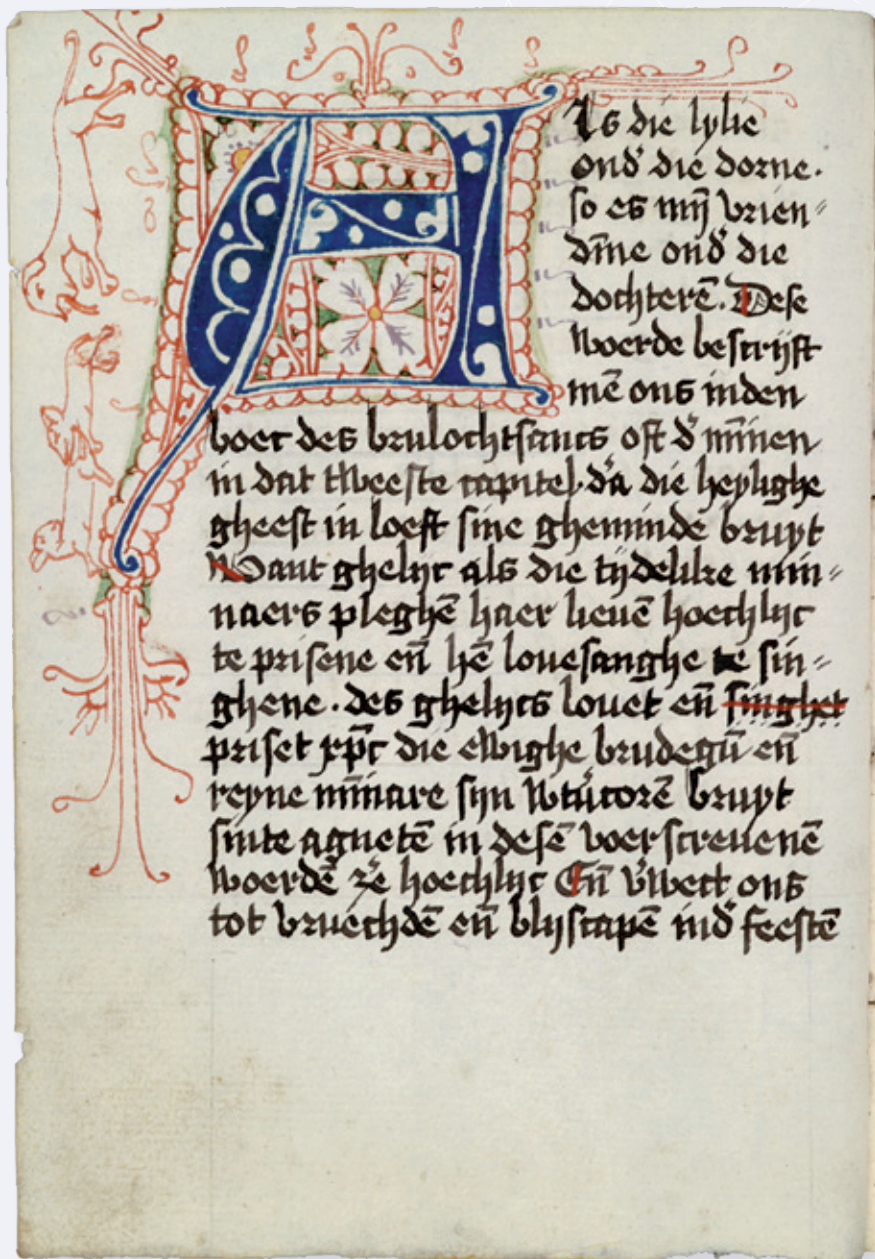 Als die lylie
ond᷎ die dorne.
so es mӯ vrien⸗
dı̄ne ond᷎ die
dochterē. Dese
woerde bescrijft
mē ons inden
boec des brulochtsancs oft d᷎ mı̄nen
in dat tweeste capitel. d᷎a die heylighe
gheest in loeft sine gheminde bruyt
Want ghelyc als die tijdelike min⸗
naers pleghē haer lieuē hoechlyc
te prisene eñ hē louesanghe te sin⸗
ghene. des ghelycs louet eñ singhet
priset xp̄c die ewighe brudegū eñ
reyne mı̄nare sijn vercorē bruyt
sinte agnetē in desē voerscreuenē
woerdē z᷎e hoechlyc Eñ v᷎wect ons
tot vruechdē eñ blijscapē ind᷎ feestē